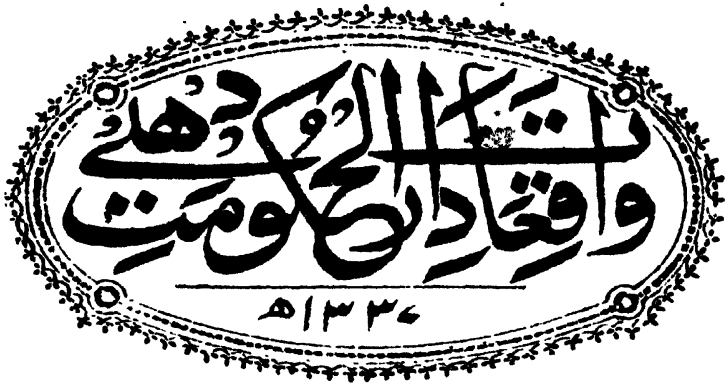 واقعات دار الحکومت دھلی
۱۳۳۷ھ